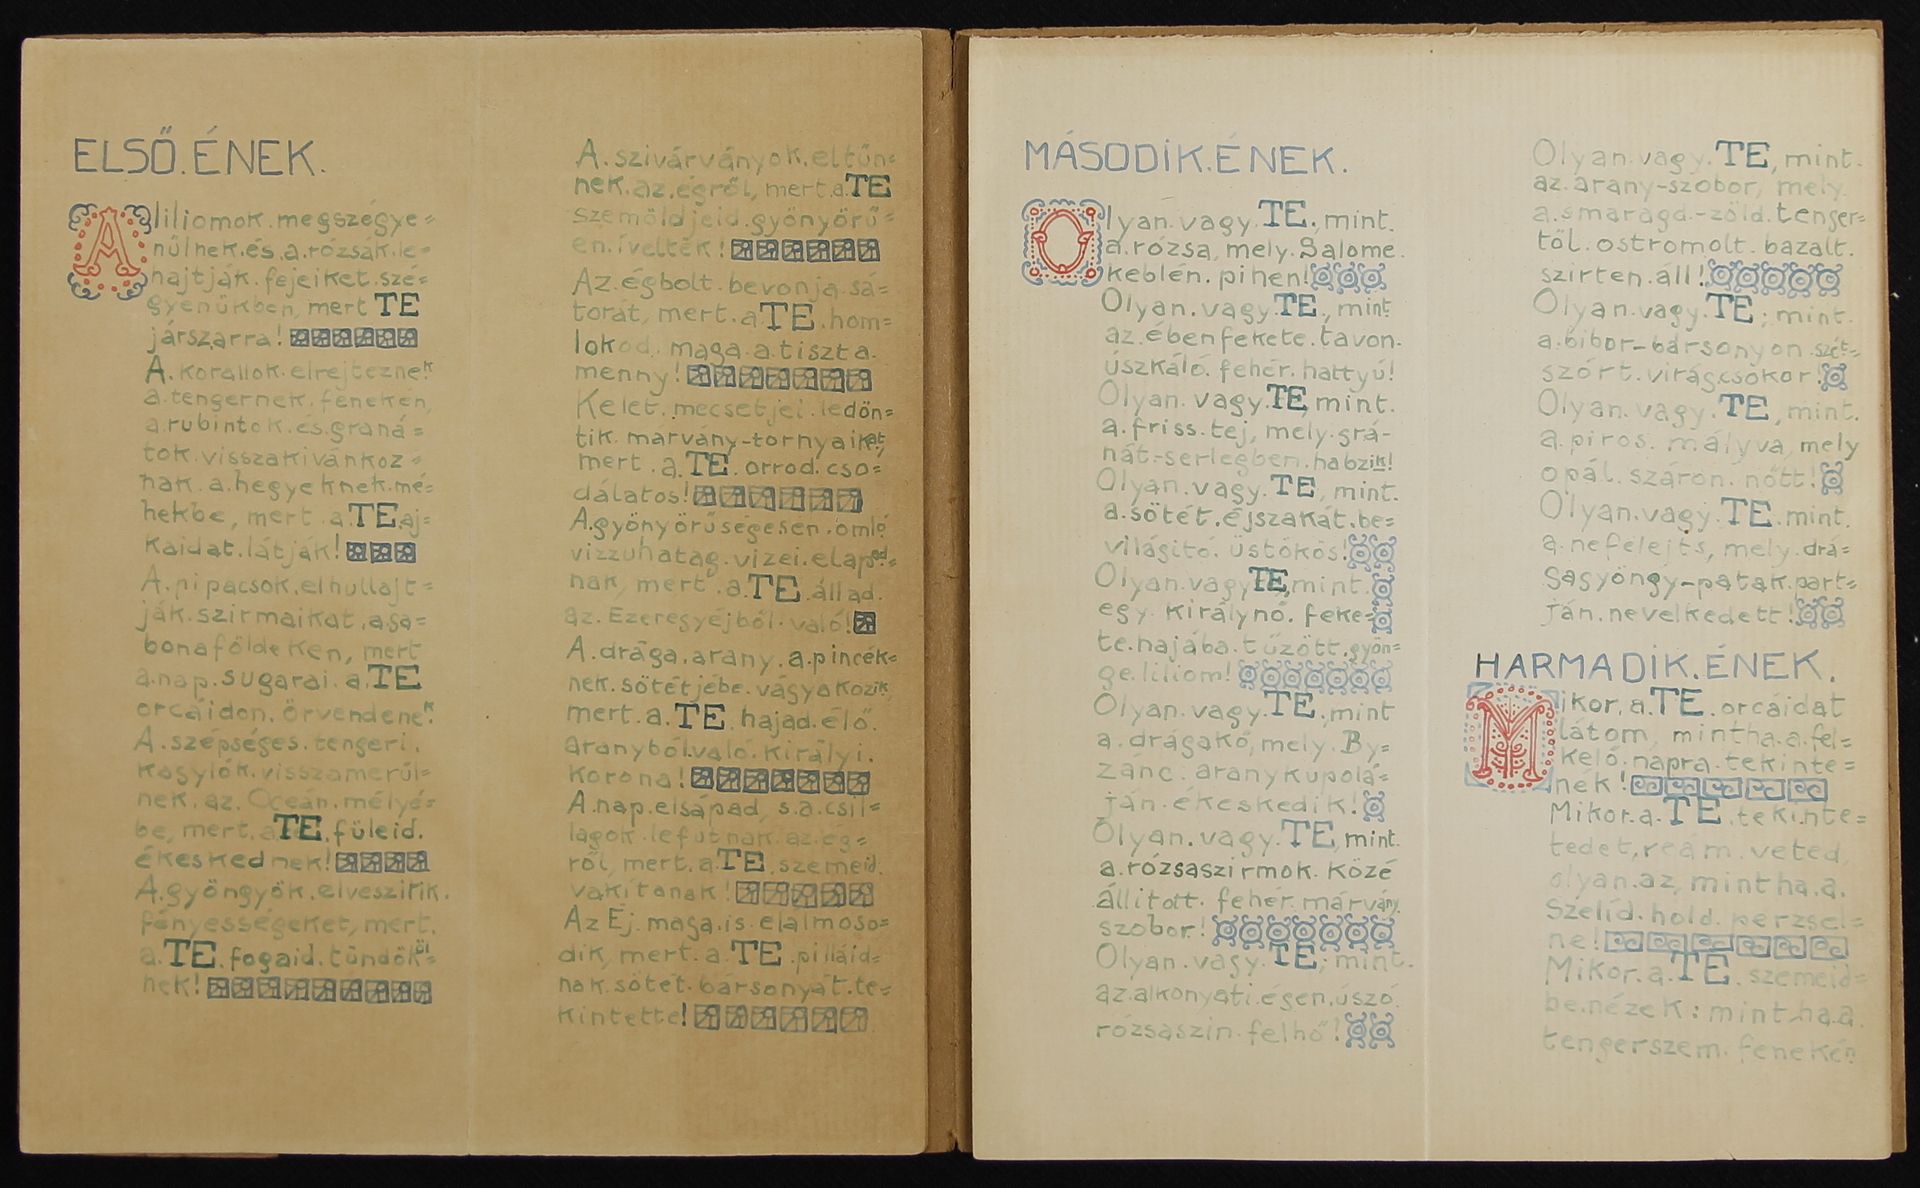 ELSŐ.ÉNEK.
A liliomok.megszégye=
nűlnek.és.a.rózsák.le=
hajtják.fejeiket.szé=
gyenükben, mert TE
járszarra!
A.korallok.elrejteznek
a.tengernek.fenekén,
a.rubintok.és.graná=
tok.visszakivánkoz=
nak.a.hegyeknek.mé=
hekbe, mert.a.TE.aj=
kaidat.látják!
A.pipacsok.elhullajt=
ják.szirmaikat.a.ga=
bonaföldeken, mert
a.nap.sugarai.a.TE
orcáidon.örvendenek.
A.szépséges.tengeri.
kagylók.visszamerűl=
nek.az.Oceán.mélyé=
be, mert.a.TE.füleid.
ékeskednek!
A.gyöngyök.elveszitik.
fényességeket, mert.
a.TE.fogaid.tündököl=
nek!
A.szivárványok.eltűn=
nek.az.égről, mert.a.TE
szemöldjeid.gyönyörű=
en.íveltek!
Az.égbolt.bevonja.sá=
torát, mert.a.TE.hom=
lokod.maga.a.tiszta.
menny!
Kelet.mecsetjei.ledön=
tik.márvány-tornyaikat,
mert.a.TE.orrod.cso=
dálatos!
A.gyönyörűségesen.ömlő
vizzuhatag.vizei.elapad=
nak, mert.a.TE.állad.
az.Ezeregyéjből.való!
A.drága.arany.a.pincék=
nek.sötétjébe.vágyakozik,
mert.a.TE.hajad.élő.
aranyból.való.királyi.
korona!
A.nap.elsápad, s.a.csil=
lagok.lefutnak.az.ég=
ről, mert.a.TE.szemeid.
vakítanak!
Az Éj.maga.is.elálmoso=
dik, mert.a.TE.pilláid=
nak.sötét.bársonyát.te=
kintette!
MÁSODIK.ÉNEK.
Olyan.vagy.TE, mint.
a.rózsa, mely.Salome.
keblén.pihen!
Olyan.vagy.TE, mint
az.ébenfekete.tavon.
úszkáló.fehér.hattyú!
Olyan.vagy.TE, mint.
a.friss.tej, mely.grá-
nát.-serlegben.habzik!
Olyan.vagy.TE, mint.
a.sötét.éjszakát.be=
világitó.üstökös!
Olyan.vagy TE, mint.
egy.királynő.feke=
te.hajába.tűzött.gyön=
ge.liliom!
Olyan.vagy.TE, mint
a.drágakő, mely.By=
zánc.aranykupolá=
ján.ékeskedik!
Olyan.vagy.TE, mint.
a.rózsaszirmok.közé
állitott.fehér.márvány
szobor!
Olyan.vagy.TE; mint.
az.alkonyati.égen.úszó.
rózsaszin.felhő!
Olyan.vagy.TE, mint.
az.arany-szobor, mely.
a.smaragd.-zöld.tenger=
től.ostromolt.bazalt.
szirten.áll!
Olyan.vagy.TE; mint.
a.bibor-bársonyon.szét=
szórt.virágcsokor!
Olyan.vagy.TE, mint.
a.piros.mályva, mely
opál.száron.nőtt!
Olyan.vagy.TE.mint.
a.nefelejts, mely.drá=
gagyöngy-patak.part=
ján.nevelkedett!
HARMADIK.ÉNEK.
Mikor.a.TE.orcáidat
látom, mintha.a.fel=
kelő.napra.tekinte=
nék!
Mikor.a.TE.tekinte=
tedet, reám.veted,
olyan.az, mintha.a.
szelíd.hold.perzsel=
ne!
Mikor.a.TE.szemeid=
be.nézek: mintha.a.
tengerszem.fenekén